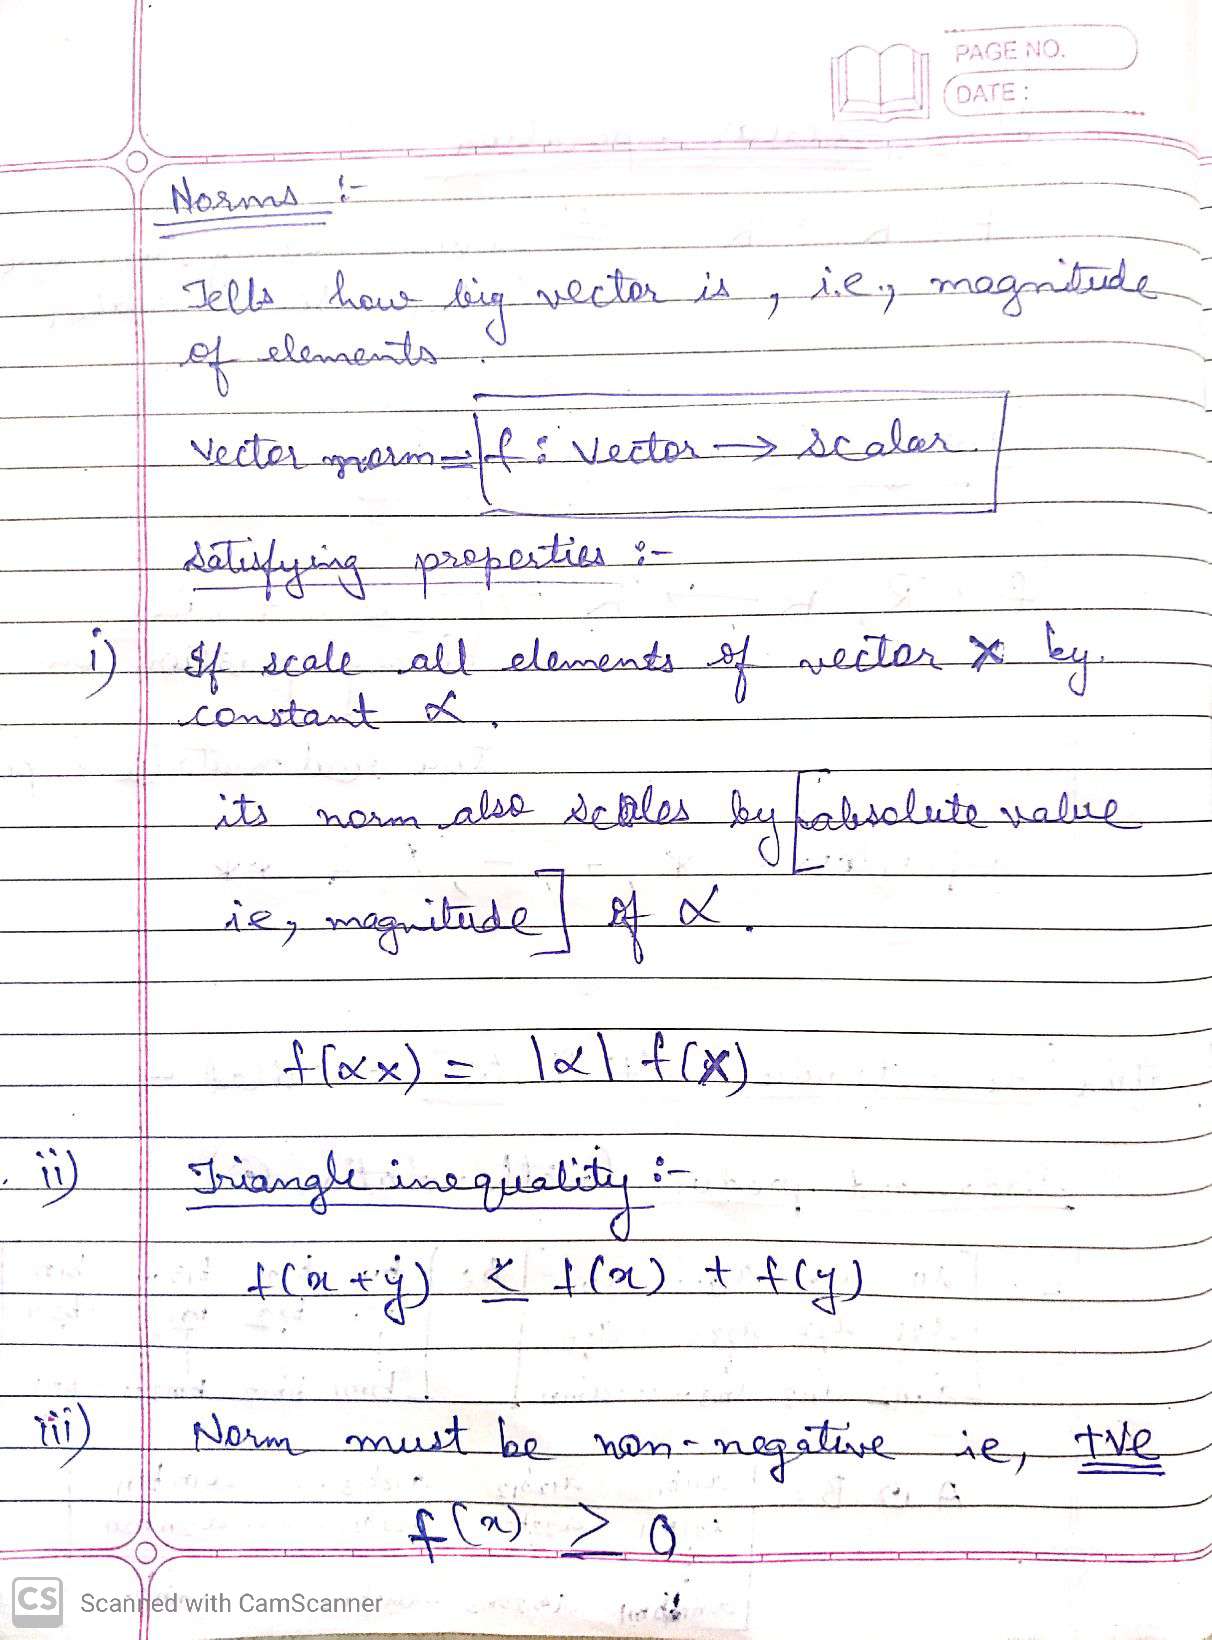 PAGE NO.
DATE :
Norms :-
Tells how big vector is , i.e., magnitude
of elements .
Vector norm = f : Vector → scalar.
Satisfying properties :-
i) If scale all elements of vector x by
constant α ,
its norm also scales by [absolute value
ie, magnitude] of α .
f(αx) = |α| f(x)
ii) Triangle inequality :-
f(x + y) ≤ f(x) + f(y)
iii) Norm must be non-negative ie, +ve
f(x) ≥ 0
CS Scanned with CamScanner